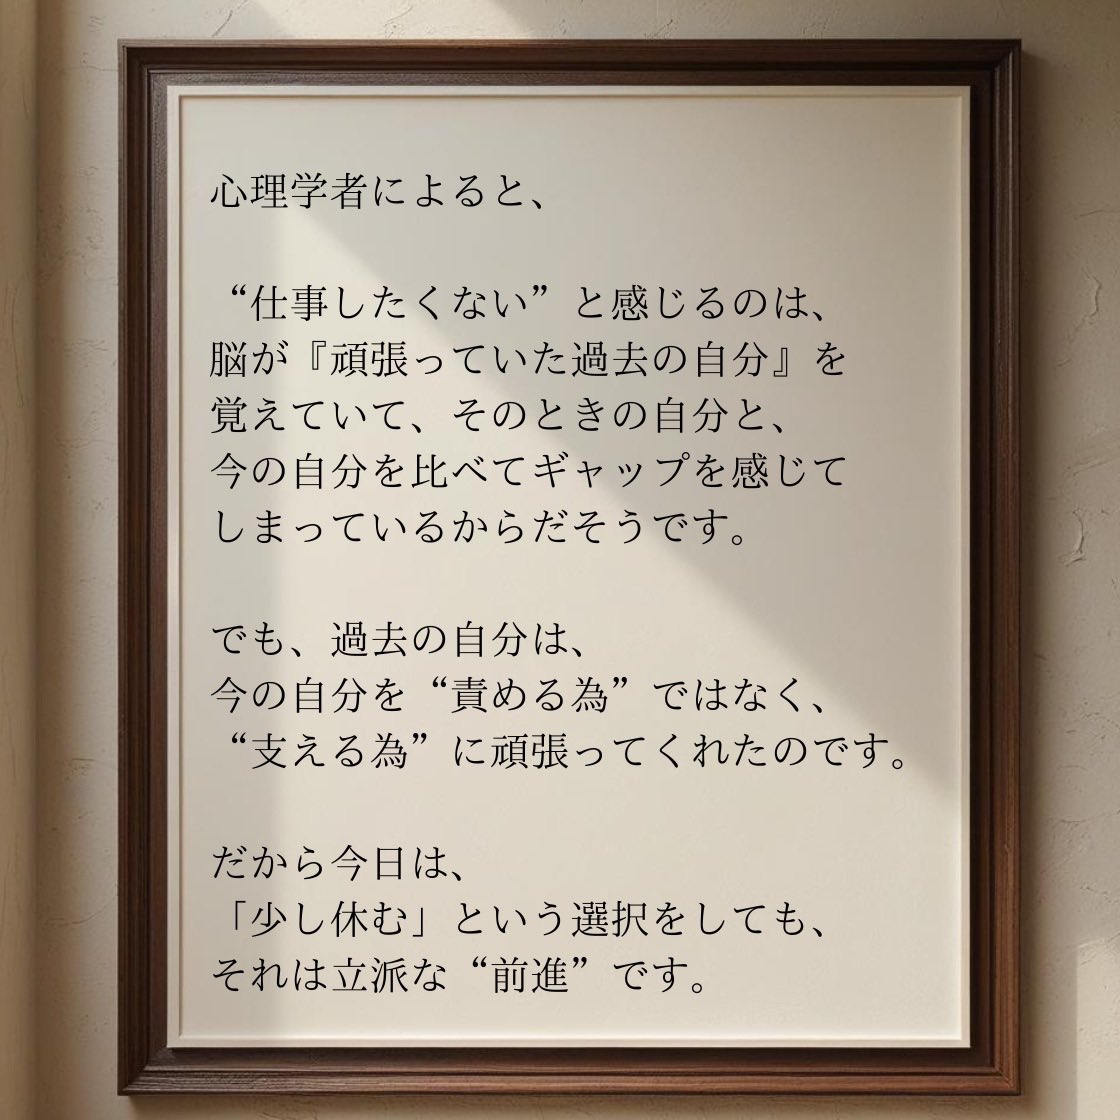 心理学者によると、
“仕事したくない”と感じるのは、
脳が『頑張っていた過去の自分』を
覚えていて、そのときの自分と、
今の自分を比べてギャップを感じて
しまっているからだそうです。
でも、過去の自分は、
今の自分を“責める為”ではなく、
“支える為”に頑張ってくれたのです。
だから今日は、
「少し休む」という選択をしても、
それは立派な“前進”です。